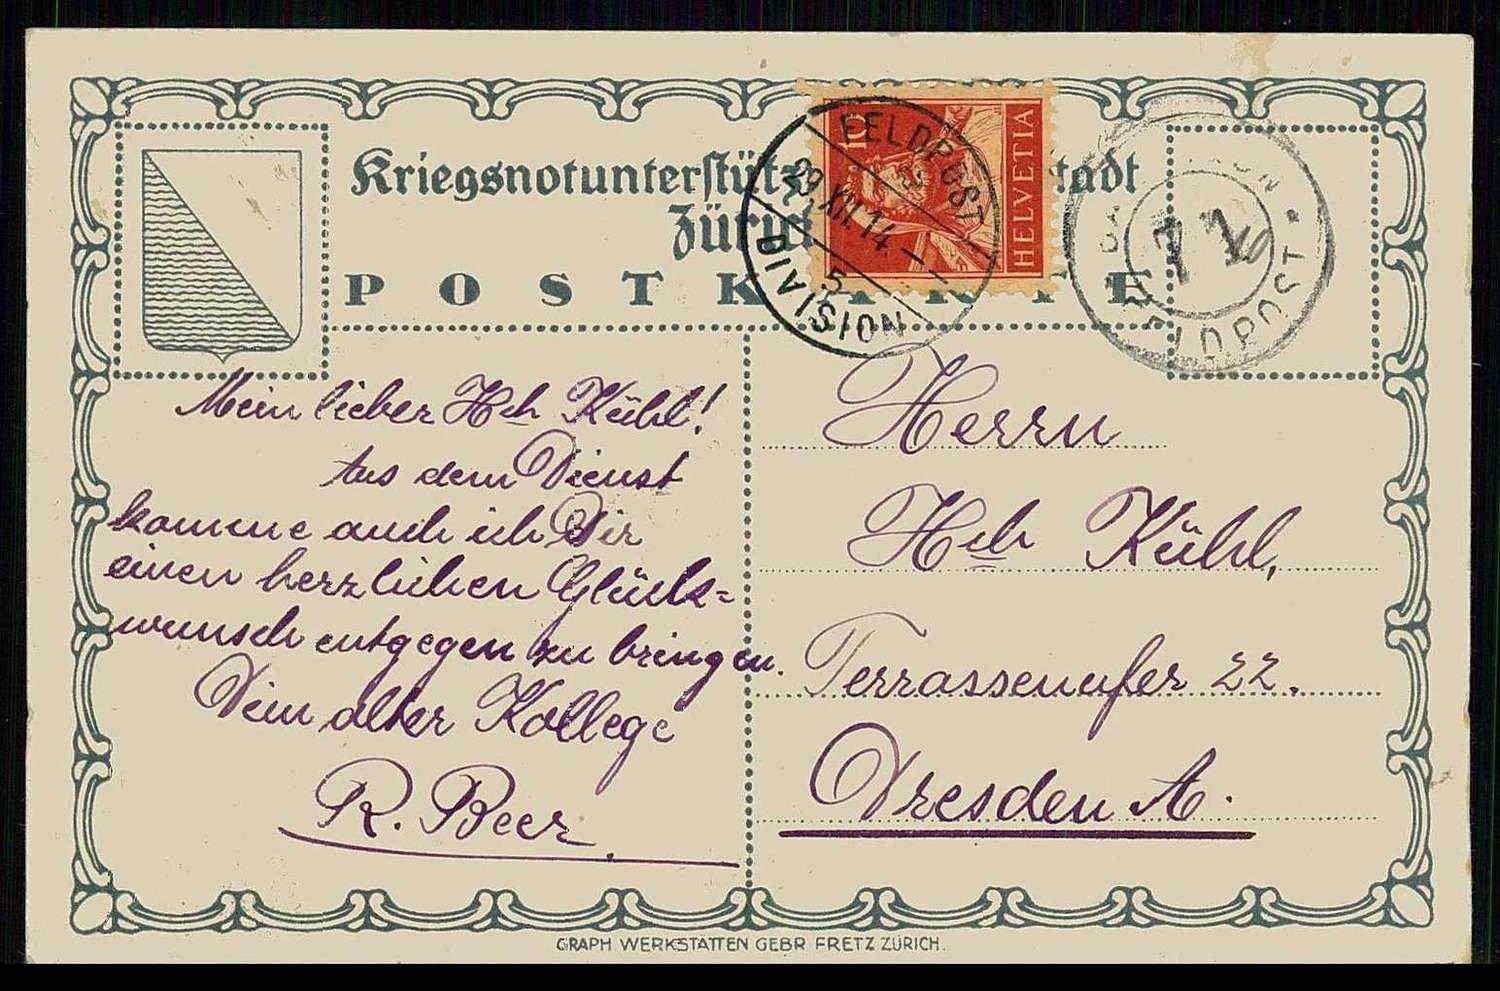 Kriegsnotunterstütz stadt
Zürich
POSTKARTE
10
HELVETIA
FELDPOST
29.XII.14.
5
DIVISION
71
FELDPOST
Mein lieber Hch Kühl!
Aus dem Dienst
komme auch ich Dir
einen herzlichen Glück=
wunsch entgegen zu bringen.
Dein alter Kollege
R. Beer.
Herrn
Hch Kühl,
Terrassenufer 22.
Dresden A.
GRAPH WERKSTÄTTEN GEBR FRETZ ZÜRICH.